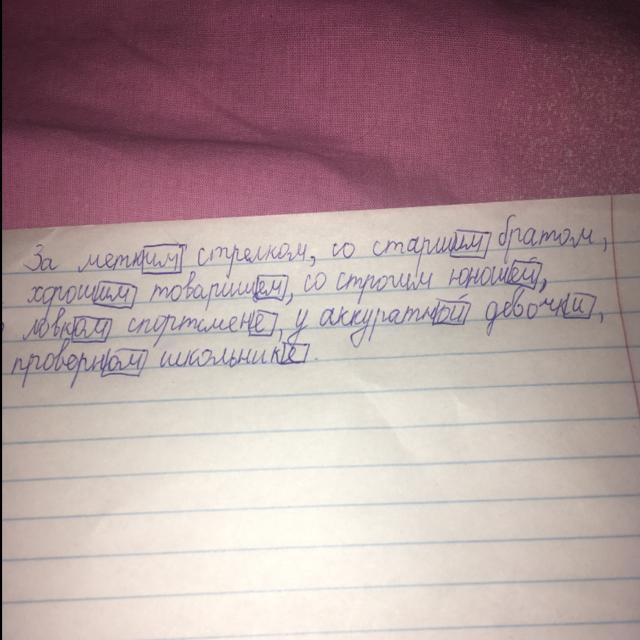 За метким стрелком, со старшим братом,
хорошим товарищем, со строгим юношей,
ловком спортсмене, у аккуратной девочки,
проверном школьнике.